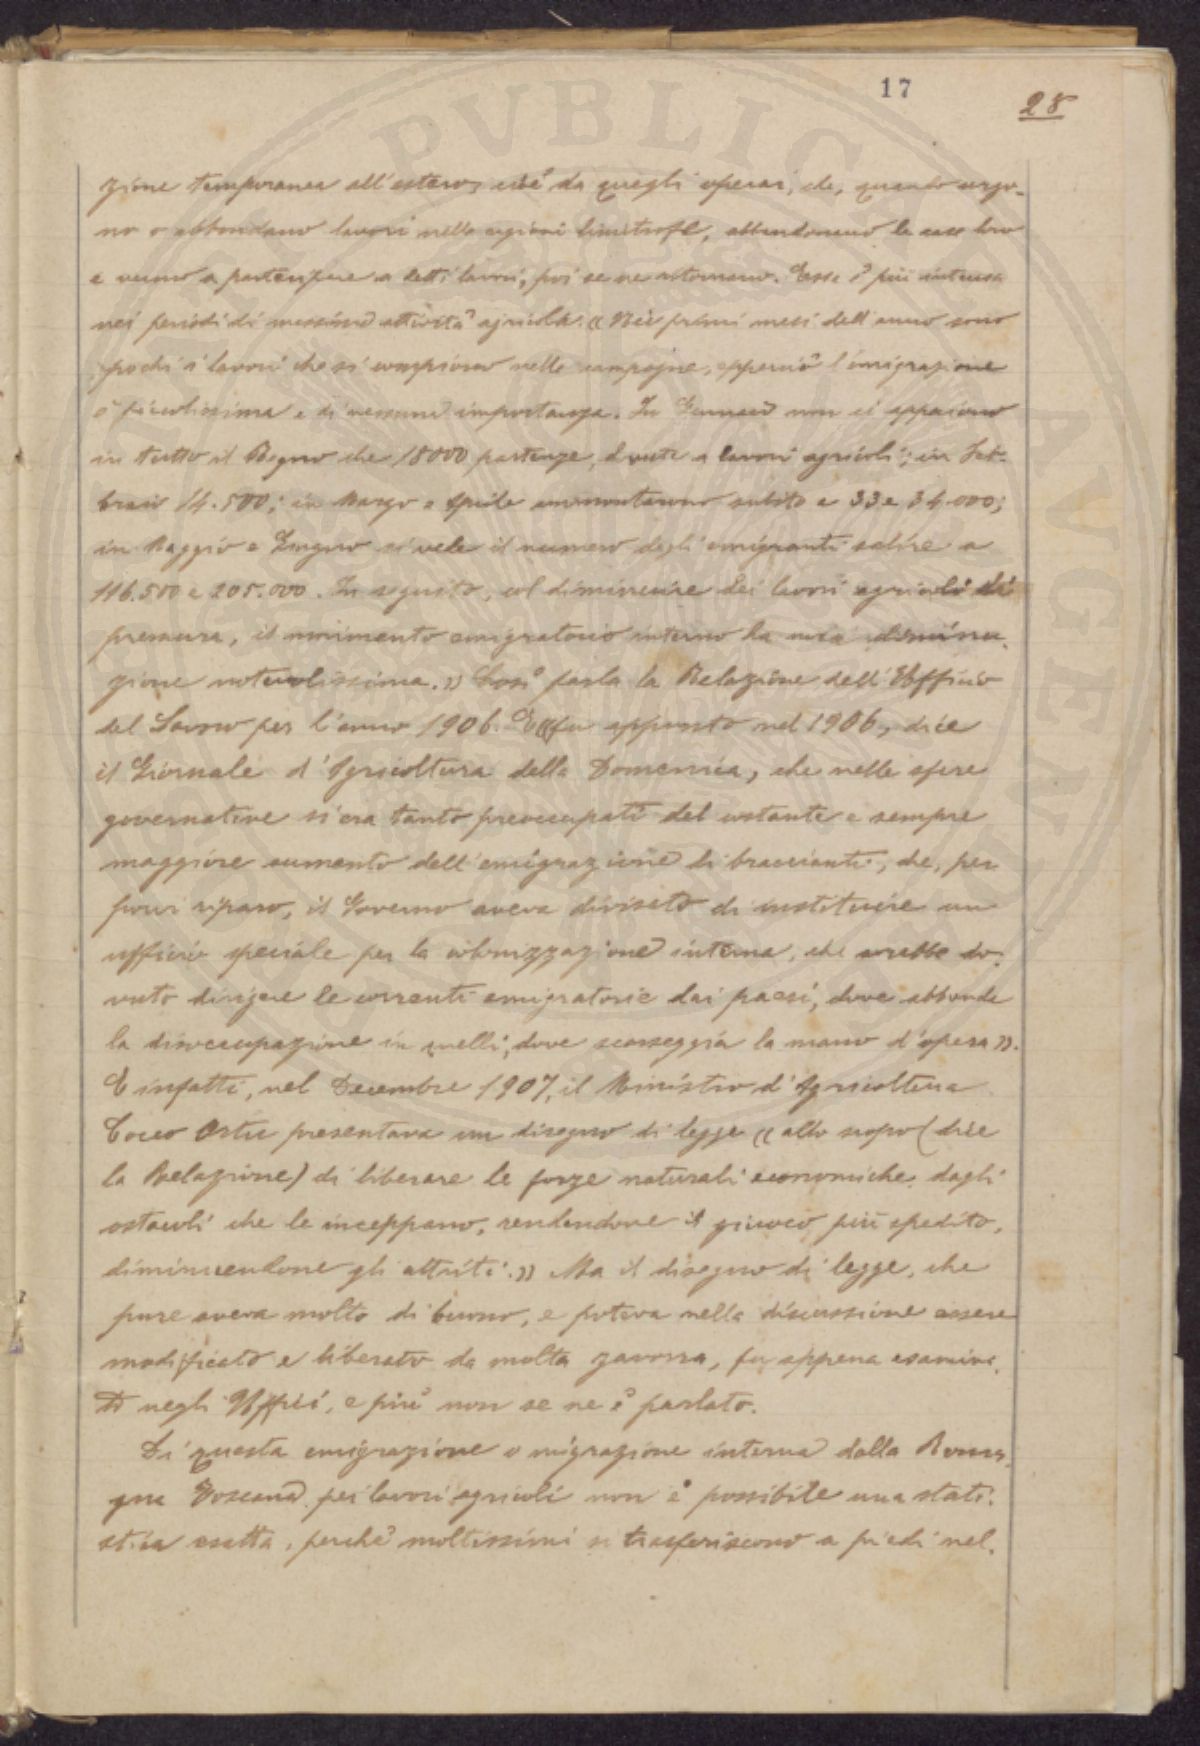 17
28
zione temporanea all'estero, cioè da quegli operai, che, quando urgo-
no o abbondano lavori nelle regioni limitrofe, abbandonano le case loro
e vanno a partecipare a detti lavori, poi se ne ritornano. Essa è più intensa
nei periodi di massima attività agricola. « Nei primi mesi dell'anno sono
pochi i lavori che si compiono nelle campagne, epperciò l'emigrazione
è piccolissima e di nessuna importanza. In Gennaio non si appaiono
in tutto il Regno che 18000 partenze, dovute a lavori agricoli; in Feb-
braio 14.500; in Marzo e Aprile ammontarono subito a 33 e 34.000;
in Maggio e Giugno si vede il numero degli emigranti salire a
116.500 e 205.000. In seguito, col diminuire dei lavori agricoli di
premura, il movimento emigratorio interno ha una diminu-
zione notevolissima. » Così parla la Relazione dell'Ufficio
del Lavoro per l'anno 1906. E « fu appunto nel 1906, dice
il Giornale d'Agricoltura della Domenica, che nelle sfere
governative si era tanto preoccupati del costante e sempre
maggiore aumento dell'emigrazione di braccianti, che, per
porvi riparo, il Governo aveva divisato di instituire un
ufficio speciale per la colonizzazione interna, che avrebbe do-
vuto dirigere le correnti emigratorie dai paesi, dove abbonda
la disoccupazione in quelli, dove scarseggia la mano d'opera ».
E infatti, nel Decembre 1907, il Ministro d'Agricoltura
Cocco Ortu presentava un disegno di legge « allo scopo (dice
la Relazione) di liberare le forze naturali economiche dagli
ostacoli che le inceppano, rendendone il giuoco più spedito,
diminuendone gli attriti. » Ma il disegno di legge, che
pure aveva molto di buono, e poteva nella discussione essere
modificato e liberato da molta zavorra, fu appena esamina-
to negli Uffici, e più non se ne è parlato.
Di questa emigrazione o migrazione interna dalla Roma-
gna Toscana per lavori agricoli non è possibile una stati-
stica esatta, perchè moltissimi si trasferiscono a piedi nel-